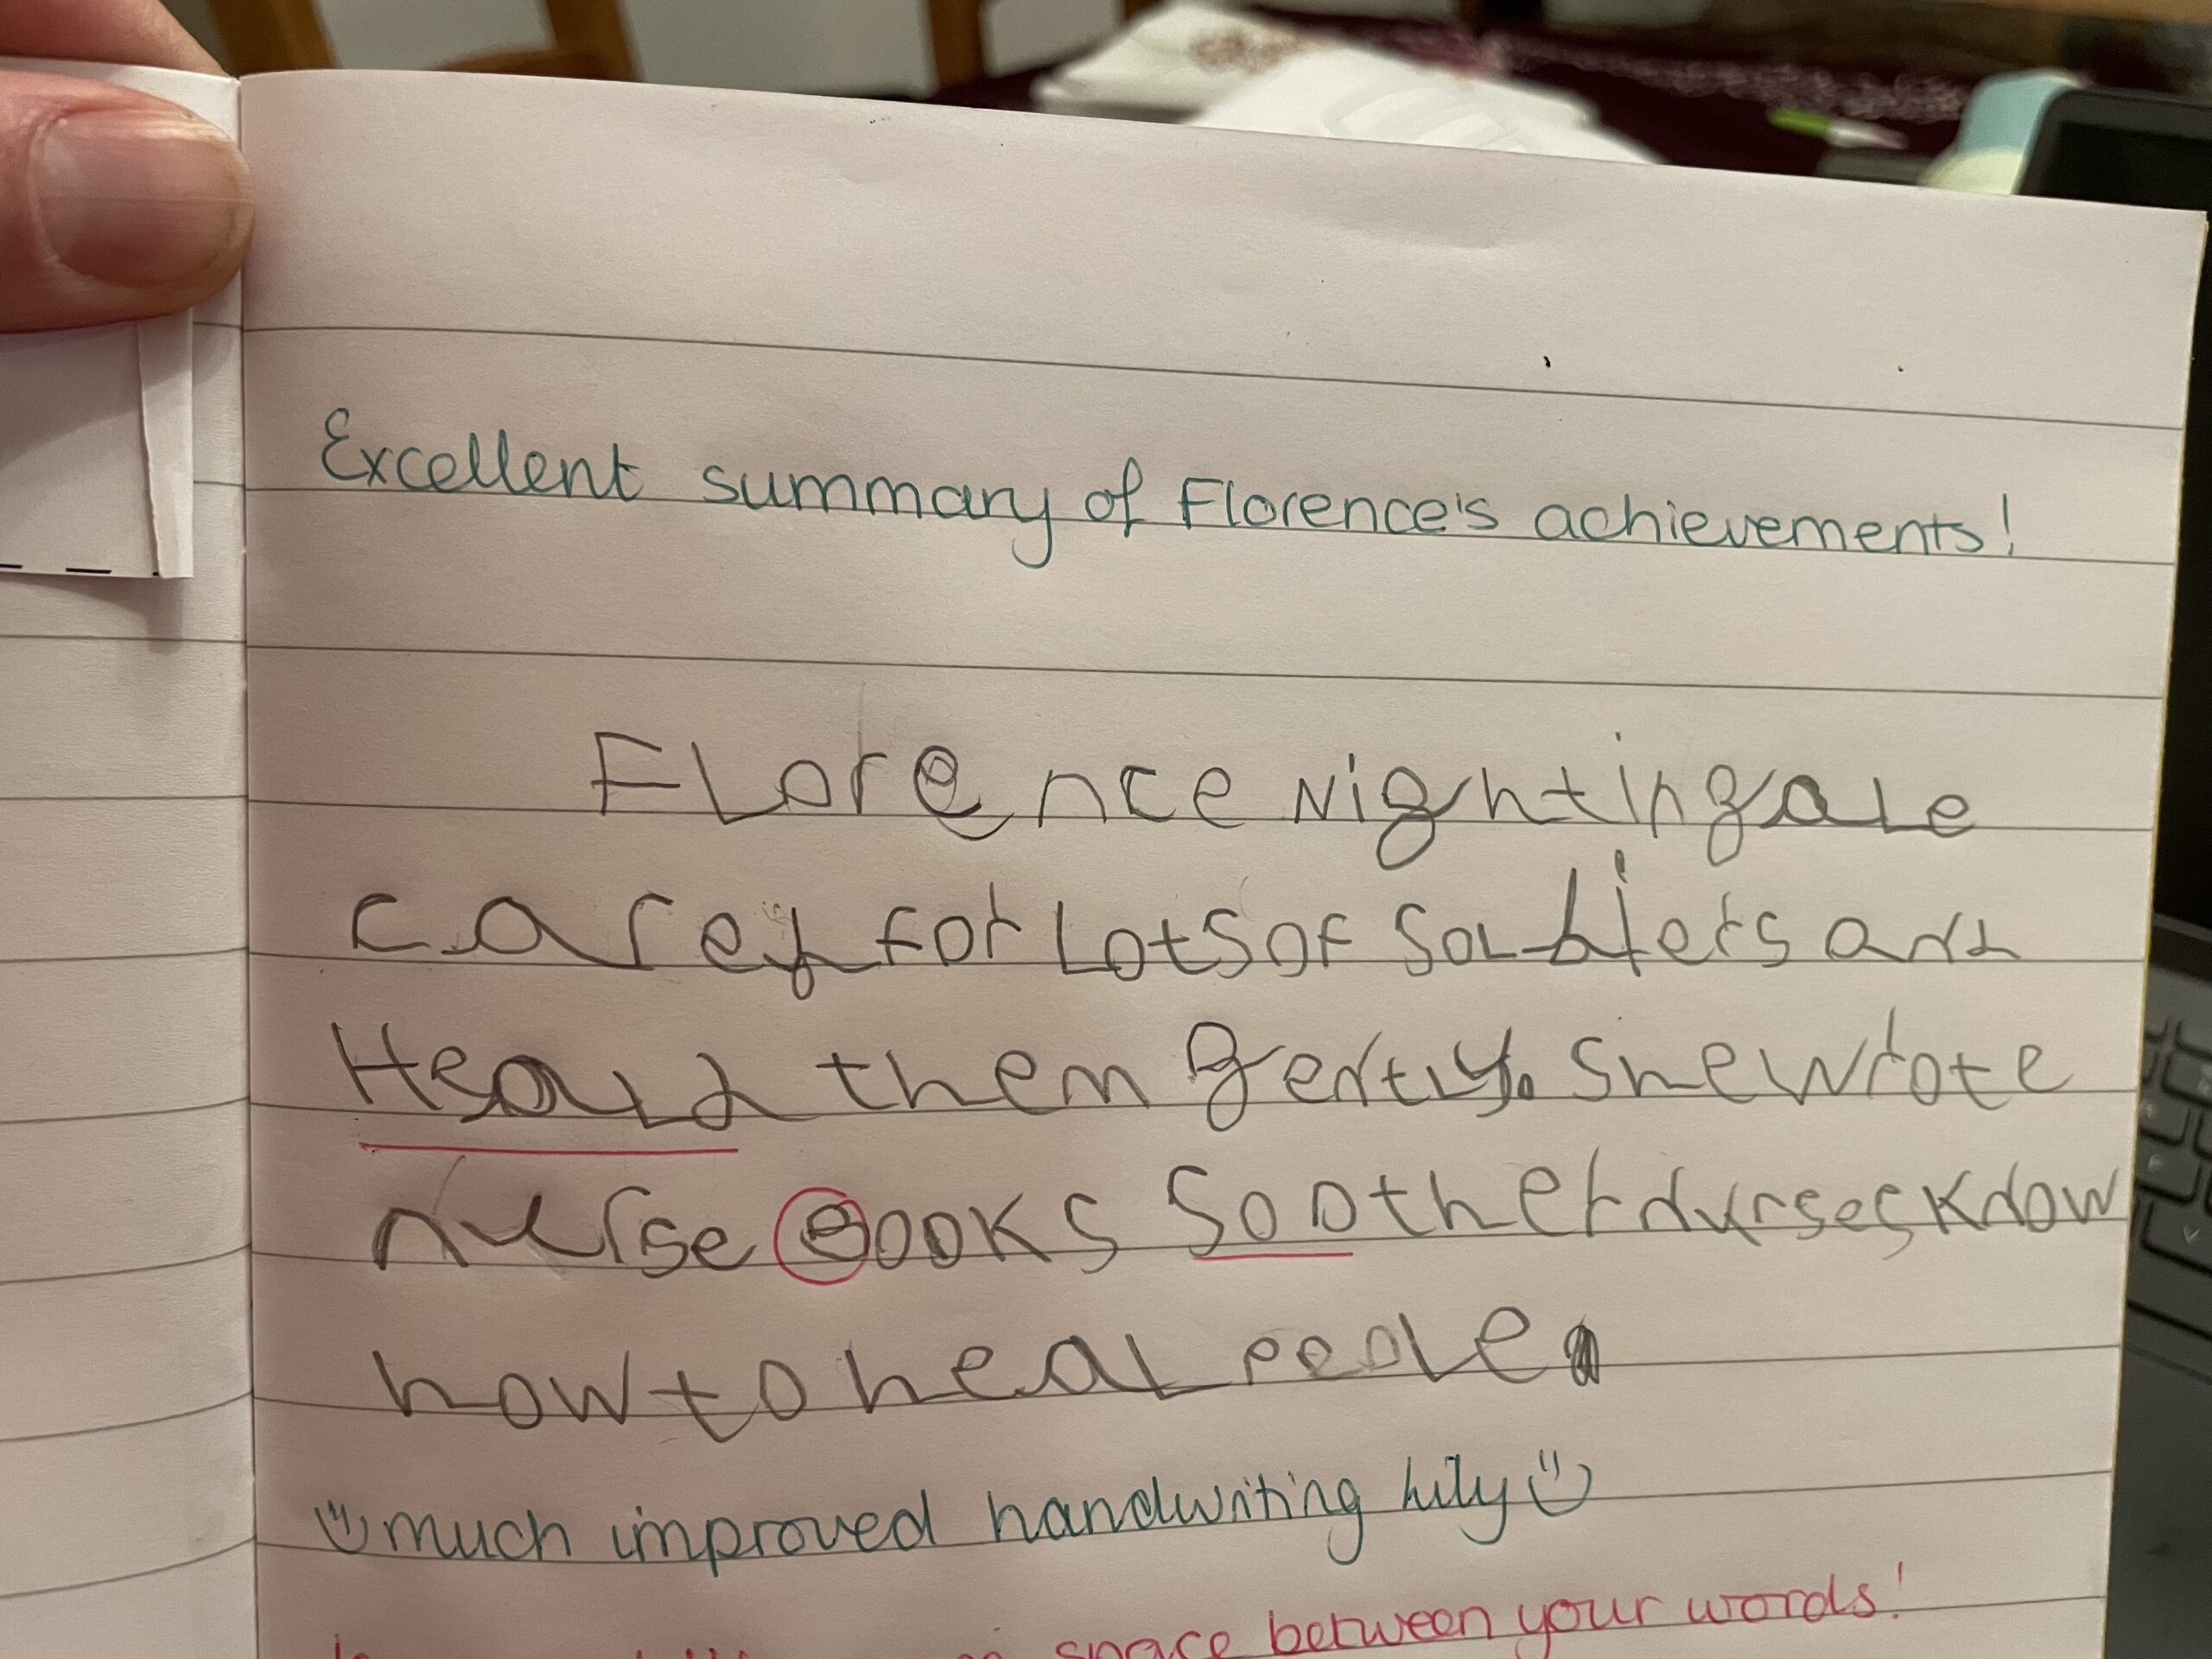 Excellent summary of Florence's achievements!
Florence Nightingale
cared for Lots of Soldiers and
Heald them gently. She wrote
nurse Books So other nurses know
how to heal peole.
much improved handwriting Lily
space between your words!